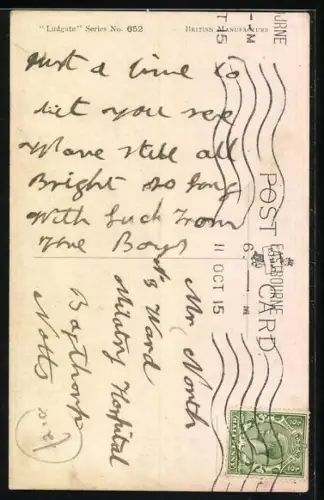 "Ludgate" Series No. 652
BRITISH MANUFACTURE
Just a line to
let you see
we are still all
Bright so long
With Luck From
The Boys
POST CARD
EASTBOURNE
6 — M
11 OCT 15
Mr North
No 3 Ward
Military Hospital
Bagthorpe
Notts